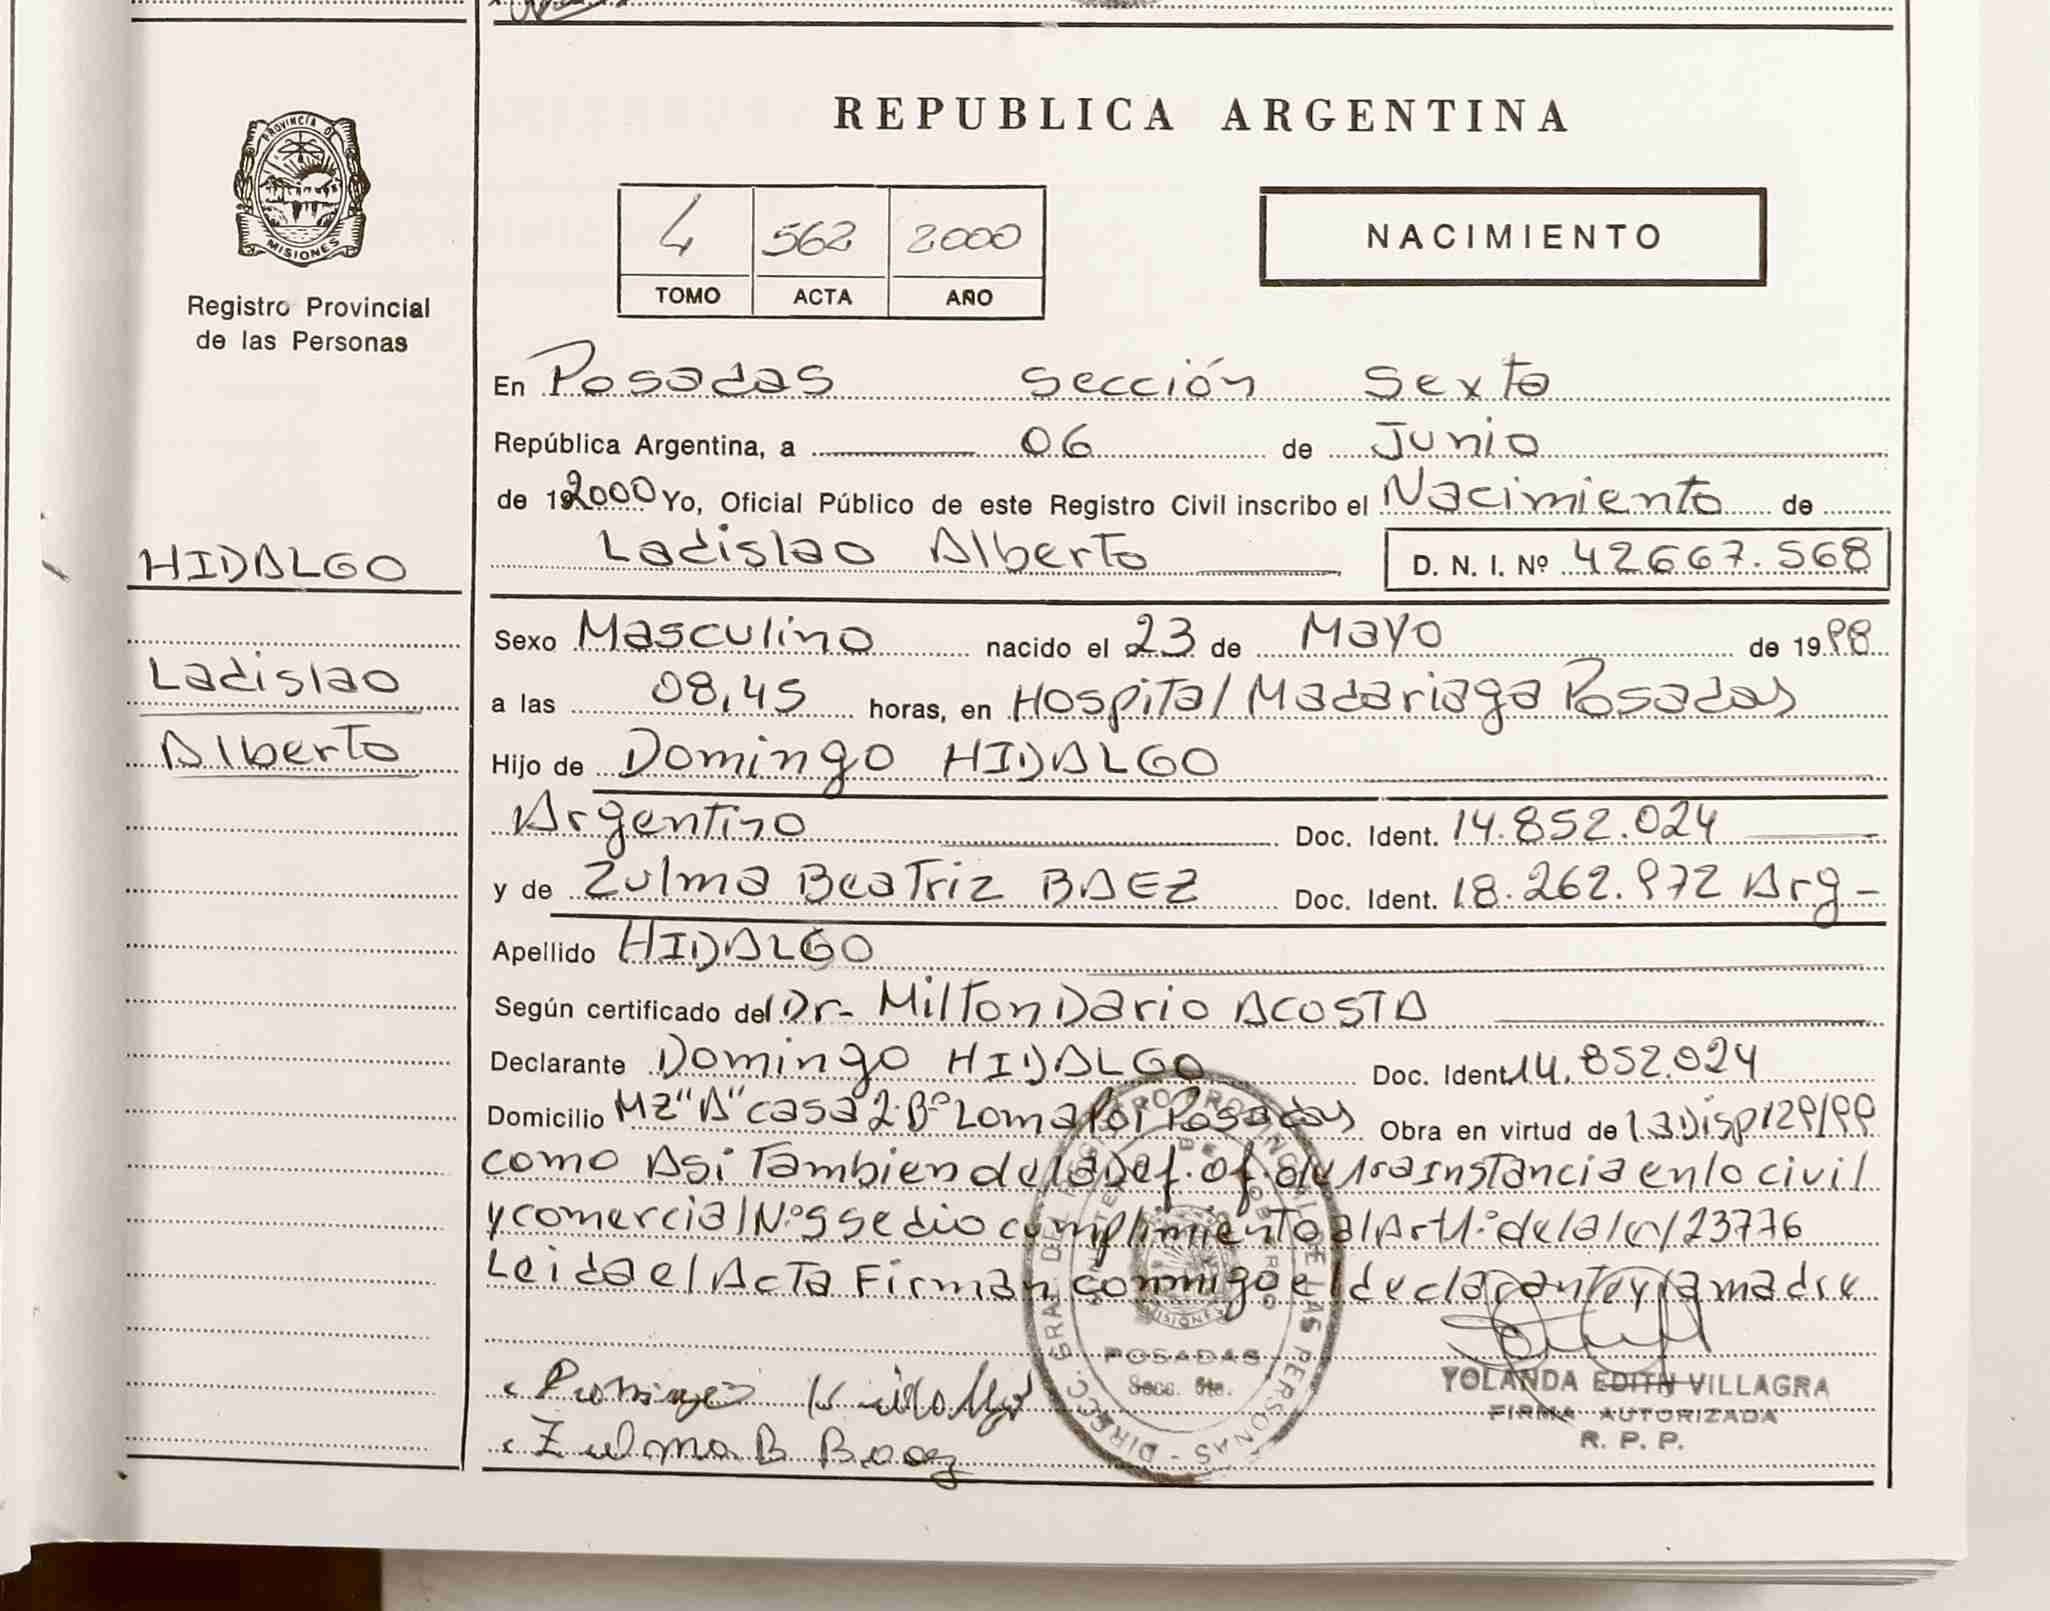 REPUBLICA ARGENTINA
PROVINCIA DE
MISIONES
Registro Provincial
de las Personas
4 562 2000
TOMO ACTA AÑO
NACIMIENTO
En Posadas Sección Sexta
República Argentina, a 06 de Junio
de 192000 Yo, Oficial Público de este Registro Civil inscribo el Nacimiento de
Ladislao Alberto D. N. I. Nº 42667.568
HIDALGO
Ladislao
Alberto
Sexo Masculino nacido el 23 de Mayo de 1998
a las 08,45 horas, en Hospital Madariaga Posadas
Hijo de Domingo HIDALGO
Argentino Doc. Ident. 14.852.024
y de Zulma Beatriz BAEZ Doc. Ident. 18.262.972 Arg-
Apellido HIDALGO
Según certificado del Dr- Milton Dario ACOSTA
Declarante Domingo HIDALGO Doc. Ident 14.852.024
Domicilio MZ"A" casa 2. Bº Loma Poi Posadas Obra en virtud de la Disp 129/99
como Asi Tambien de la Def. of. de 1ra instancia en lo civil
y comercial Nº 5 se dio cumplimiento al Art 1º de la ley 23776
Leida el Acta Firman conmigo el declarante y la madre
Zulma B Baez
POSADAS
Secc. 6ta.
YOLANDA EDITH VILLAGRA
FIRMA AUTORIZADA
R. P. P.